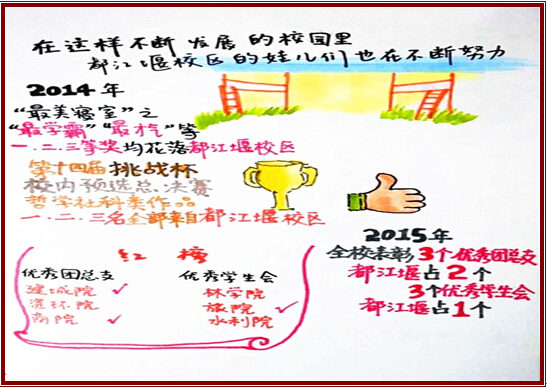 在这样不断发展的校园里
都江堰校区的娃儿们也在不断努力
2014年
“最美寝室”之
“最学霸”“最才气”等
一.二.三等奖均花落都江堰校区
第十四届挑战杯
校内预选总决赛
哲学社科类作品
一.二.三名全部来自都江堰校区
2015年
全校表彰3个优秀团总支
都江堰占2个
3个优秀学生会
都江堰占1个
红榜
优秀团总支 优秀学生会
建城院✓ 林学院
资环院 旅院✓
商院✓ 水利院